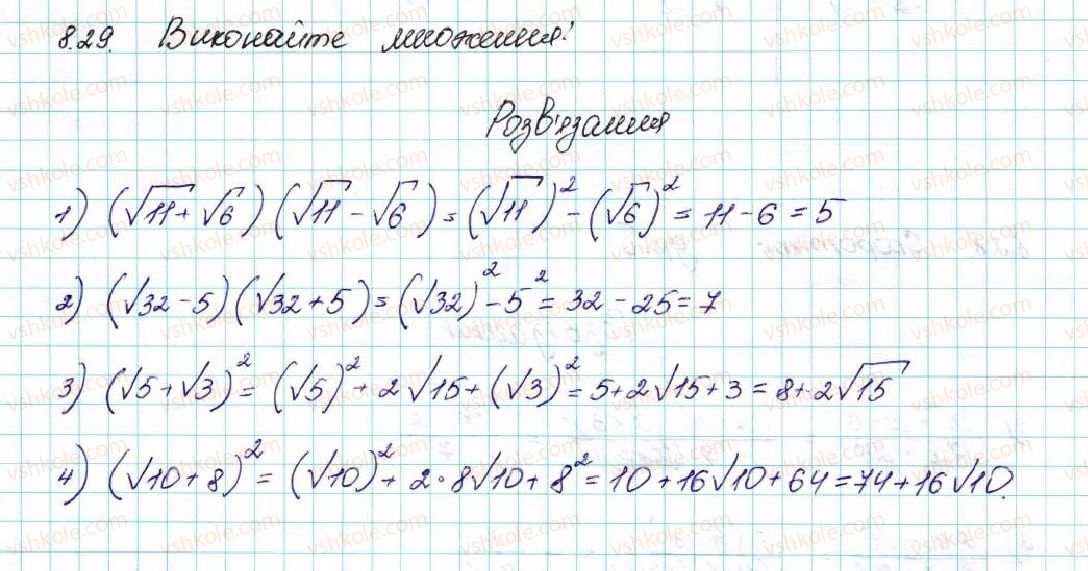 8.29. Виконайте множення:
Розв'язання
1) (√11 + √6)(√11 - √6) = (√11)² - (√6)² = 11 - 6 = 5
2) (√32 - 5)(√32 + 5) = (√32)² - 5² = 32 - 25 = 7
3) (√5 + √3)² = (√5)² + 2√15 + (√3)² = 5 + 2√15 + 3 = 8 + 2√15
4) (√10 + 8)² = (√10)² + 2·8√10 + 8² = 10 + 16√10 + 64 = 74 + 16√10.
vshkole.com